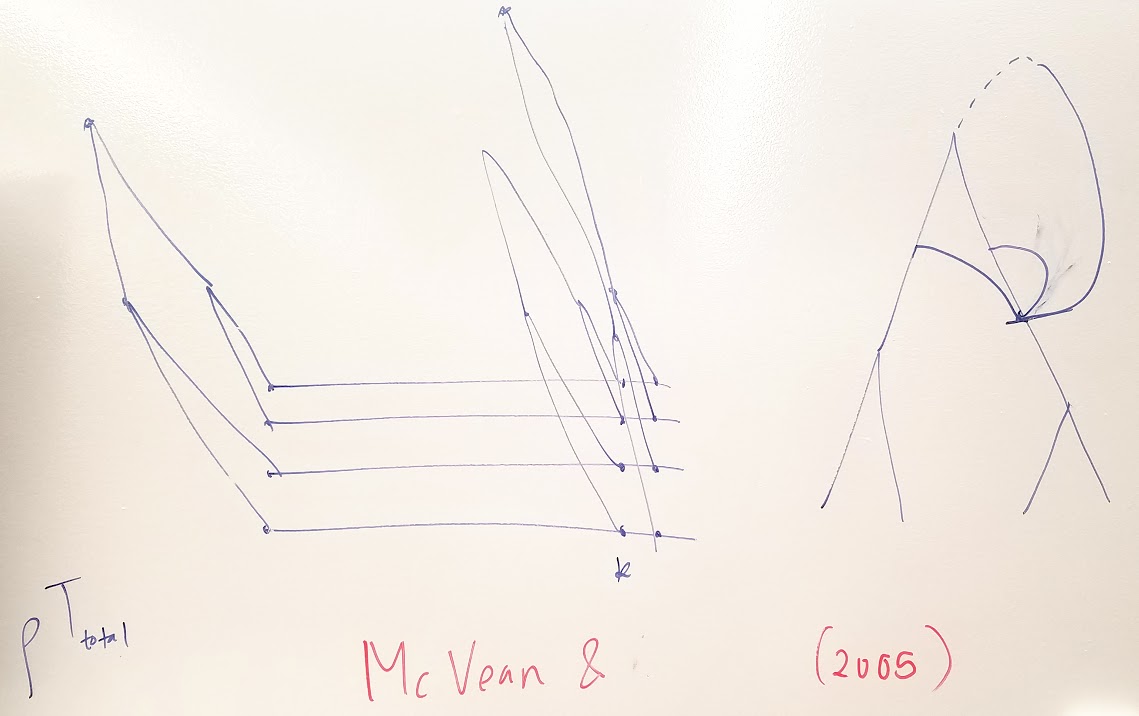 k
ρ T total
McVean & (2005)